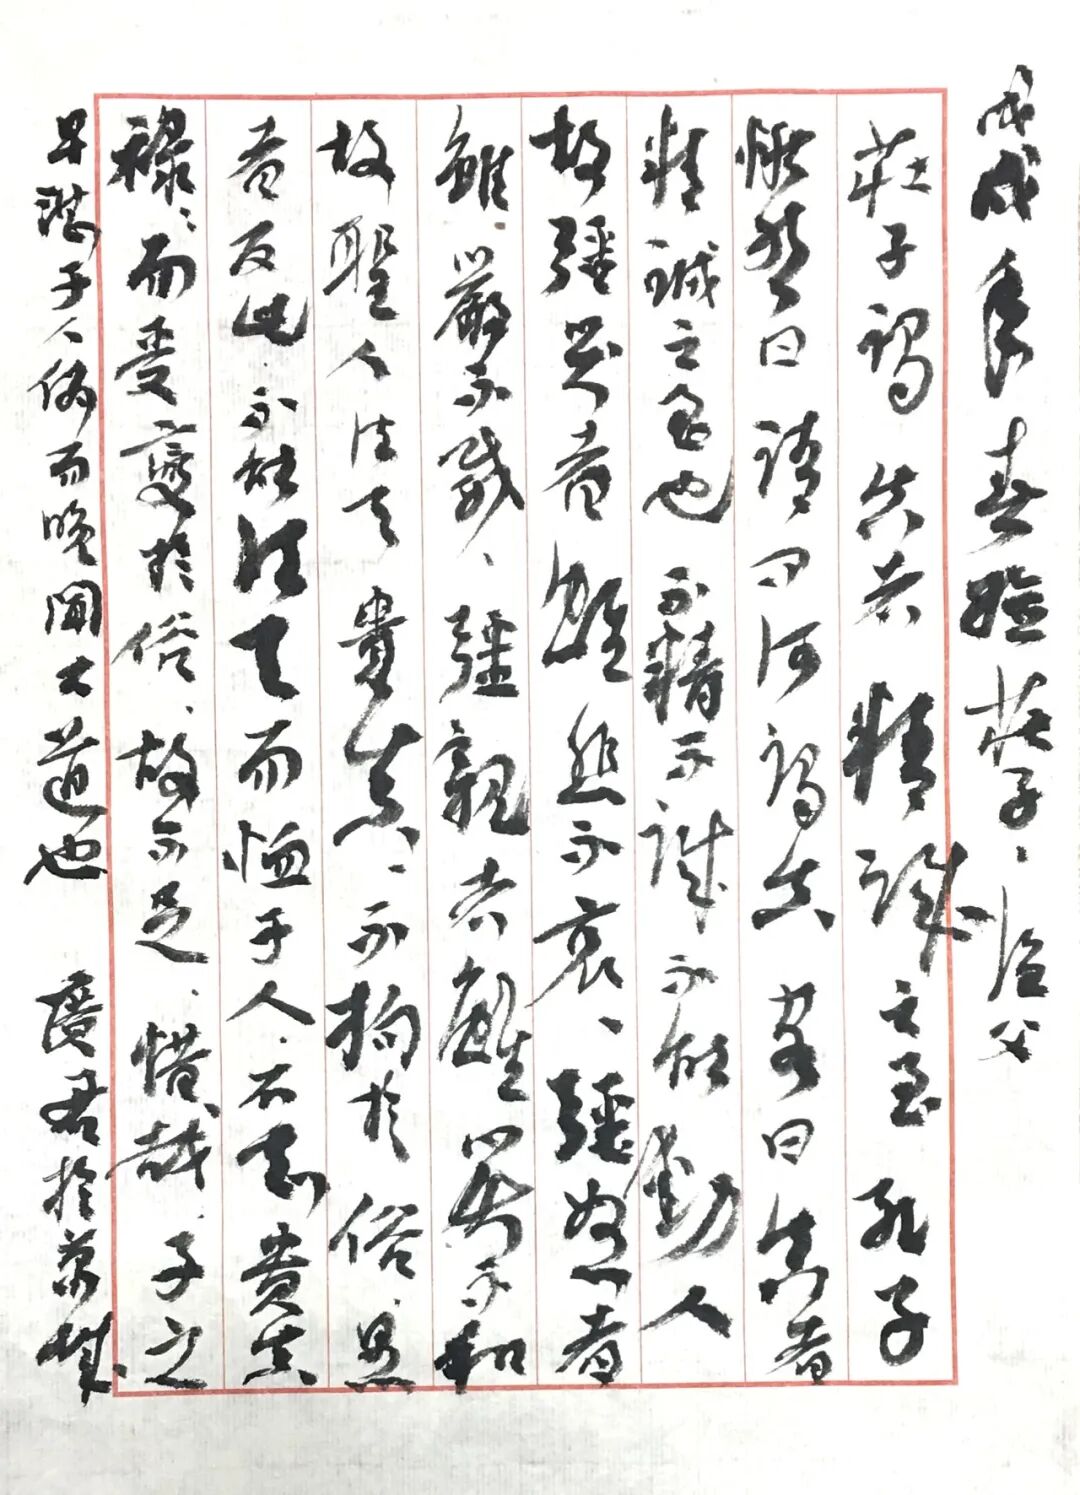 戊戌年春莊子、漁父
莊子謂真者精誠之至孔子
愀然曰請問何謂真客曰真者
精誠之至也不精不誠不能動人
故彊哭者雖悲不哀、彊怒者
雖嚴不威、彊親者雖笑不和
故聖人法天貴真、不拘於俗、愚
者反此、不能法天而恤于人、不知貴真
祿、而受變於俗、故不足、惜哉、子之
早湛于人偽而晚聞大道也 廣君於京城